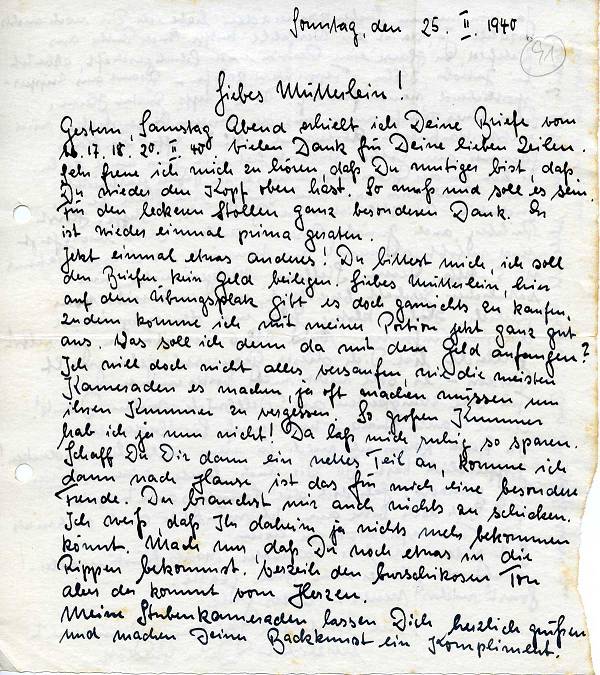 Sonntag, den 25. II. 1940
91
Liebes Mütterlein!
Gestern, Samstag Abend erhielt ich Deine Briefe vom
16. 17. 18. 20. II 40 vielen Dank für Deine lieben Zeilen.
Sehr freue ich mich zu hören, daß Du mutiger bist, daß
Du wieder den Kopf oben hast. So muß und soll es sein.
Für den leckeren Stollen ganz besonderen Dank. Er
ist wieder einmal prima geraten.
Jetzt einmal etwas anderes! Du bittest mich, ich soll
den Briefen kein Geld beilegen. Liebes Mütterlein, hier
auf dem Übungsplatz gibt es doch garnichts zu kaufen,
zudem komme ich mit meiner Portion jetzt ganz gut
aus. Was soll ich denn da mit dem Geld anfangen?
Ich will doch nicht alles versaufen wie die meisten
Kameraden es machen, ja oft machen müssen um
ihren Kummer zu vergessen. So großen Kummer
hab ich ja nun nicht! Da laß mich ruhig so sparen.
Schaff Du Dir dann ein nettes Teil an, komme ich
dann nach Hause ist das für mich eine besondere
Freude. Du brauchst mir auch nichts zu schicken.
Ich weiß, daß Ihr daheim ja nichts mehr bekommen
könnt. Mach nur, daß Du noch etwas in die
Rippen bekommst. Verzeih den burschikosen Ton
aber der kommt vom Herzen.
Meine Stubenkameraden lassen Dich herzlich grüßen
und machen Deiner Backkunst ein Kompliment.